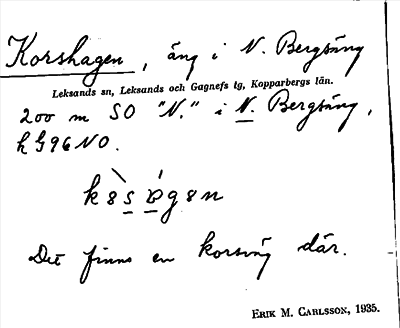 Korshagen, äng i N. Bergsäng
Leksands sn, Leksands och Gagnefs tg, Kopparbergs län.
200 m SO "N." i N. Bergsäng,
h G96 NO.
Det finns en korsväg där.
ERIK M. CARLSSON, 1935.